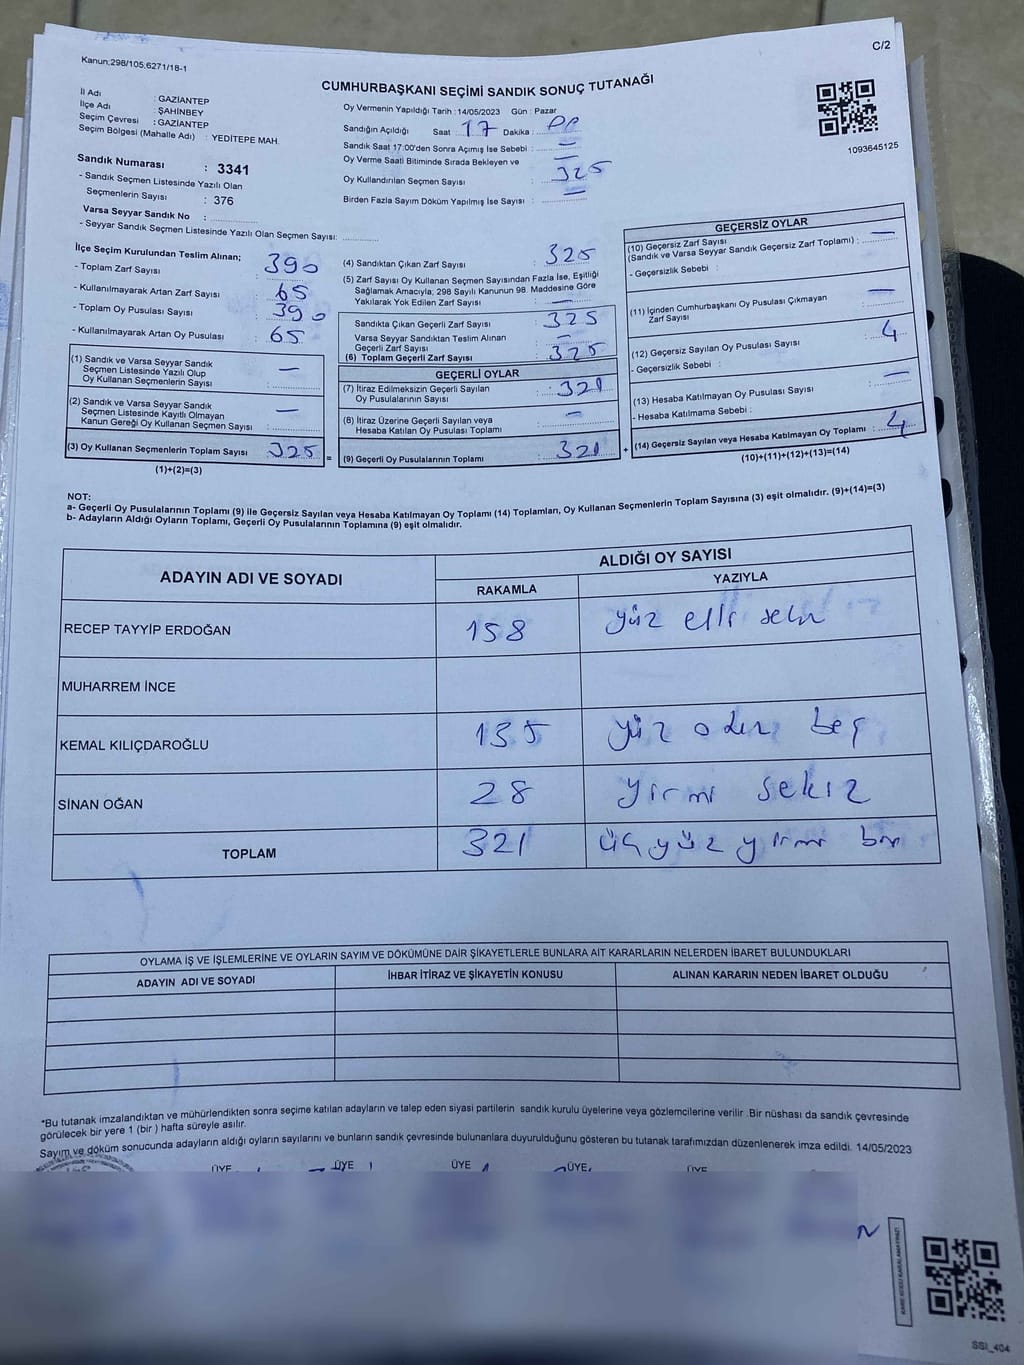 C/2
Kanun;298/105;6271/18-1
CUMHURBAŞKANI SEÇİMİ SANDIK SONUÇ TUTANAĞI
İl Adı : GAZİANTEP
İlçe Adı : ŞAHİNBEY
Seçim Çevresi : GAZİANTEP
Seçim Bölgesi (Mahalle Adı) : YEDİTEPE MAH.
Sandık Numarası : 3341
- Sandık Seçmen Listesinde Yazılı Olan
Seçmenlerin Sayısı : 376
Varsa Seyyar Sandık No :
- Seyyar Sandık Seçmen Listesinde Yazılı Olan Seçmen Sayısı:
Oy Vermenin Yapıldığı Tarih :14/05/2023 Gün : Pazar
Sandığın Açıldığı Saat : 17 Dakika :
Sandık Saat 17:00'den Sonra Açımış İse Sebebi : —
Oy Verme Saati Bitiminde Sırada Bekleyen ve : —
Oy Kullandırılan Seçmen Sayısı : 325
Birden Fazla Sayım Döküm Yapılmış İse Sayısı : —
1093645125
İlçe Seçim Kurulundan Teslim Alınan;
- Toplam Zarf Sayısı : 390
- Kullanılmayarak Artan Zarf Sayısı : 65
- Toplam Oy Pusulası Sayısı : 390
- Kullanılmayarak Artan Oy Pusulası : 65
(1) Sandık ve Varsa Seyyar Sandık
Seçmen Listesinde Yazılı Olup
Oy Kullanan Seçmenlerin Sayısı : —
(2) Sandık ve Varsa Seyyar Sandık
Seçmen Listesinde Kayıtlı Olmayan
Kanun Gereği Oy Kullanan Seçmen Sayısı : —
(3) Oy Kullanan Seçmenlerin Toplam Sayısı : 325
(1)+(2)=(3)
(4) Sandıktan Çıkan Zarf Sayısı : 325
(5) Zarf Sayısı Oy Kullanan Seçmen Sayısından Fazla İse, Eşitliği
Sağlamak Amacıyla; 298 Sayılı Kanunun 98. Maddesine Göre
Yakılarak Yok Edilen Zarf Sayısı : —
Sandıkta Çıkan Geçerli Zarf Sayısı : 325
Varsa Seyyar Sandıktan Teslim Alınan
Geçerli Zarf Sayısı : —
(6) Toplam Geçerli Zarf Sayısı : 325
GEÇERLİ OYLAR
(7) İtiraz Edilmeksizin Geçerli Sayılan
Oy Pusulalarının Sayısı : 321
(8) İtiraz Üzerine Geçerli Sayılan veya
Hesaba Katılan Oy Pusulası Toplamı : —
(9) Geçerli Oy Pusulalarının Toplamı : 321
GEÇERSİZ OYLAR
(10) Geçersiz Zarf Sayısı
(Sandık ve Varsa Seyyar Sandık Geçersiz Zarf Toplamı) : —
- Geçersizlik Sebebi :
(11) İçinden Cumhurbaşkanı Oy Pusulası Çıkmayan
Zarf Sayısı : —
(12) Geçersiz Sayılan Oy Pusulası Sayısı : 4
- Geçersizlik Sebebi :
(13) Hesaba Katılmayan Oy Pusulası Sayısı : —
- Hesaba Katılmama Sebebi :
(14) Geçersiz Sayılan veya Hesaba Katılmayan Oy Toplamı : 4
(10)+(11)+(12)+(13)=(14)
NOT:
a- Geçerli Oy Pusulalarının Toplamı (9) ile Geçersiz Sayılan veya Hesaba Katılmayan Oy Toplamı (14) Toplamları, Oy Kullanan Seçmenlerin Toplam Sayısına (3) eşit olmalıdır. (9)+(14)=(3)
b- Adayların Aldığı Oyların Toplamı, Geçerli Oy Pusulalarının Toplamına (9) eşit olmalıdır.
ADAYIN ADI VE SOYADI ALDIĞI OY SAYISI
RAKAMLA YAZIYLA
RECEP TAYYİP ERDOĞAN 158 yüz elli
MUHARREM İNCE
KEMAL KILIÇDAROĞLU 135 yüz otuz beş
SİNAN OĞAN 28 yirmi sekiz
TOPLAM 321 üçyüz yirmi bir
OYLAMA İŞ VE İŞLEMLERİNE VE OYLARIN SAYIM VE DÖKÜMÜNE DAİR ŞİKAYETLERLE BUNLARA AİT KARARLARIN NELERDEN İBARET BULUNDUKLARI
ADAYIN ADI VE SOYADI İHBAR İTİRAZ VE ŞİKAYETİN KONUSU ALINAN KARARIN NEDEN İBARET OLDUĞU
*Bu tutanak imzalandıktan ve mühürlendikten sonra seçime katılan adayların ve talep eden siyasi partilerin sandık kurulu üyelerine veya gözlemcilerine verilir .Bir nüshası da sandık çevresinde
görülecek bir yere 1 (bir ) hafta süreyle asılır.
Sayım ve döküm sonucunda adayların aldığı oyların sayılarını ve bunların sandık çevresinde bulunanlara duyurulduğunu gösteren bu tutanak tarafımızdan düzenlenerek imza edildi. 14/05/2023
ÜYE ÜYE ÜYE ÜYE ÜYE
SSI_404